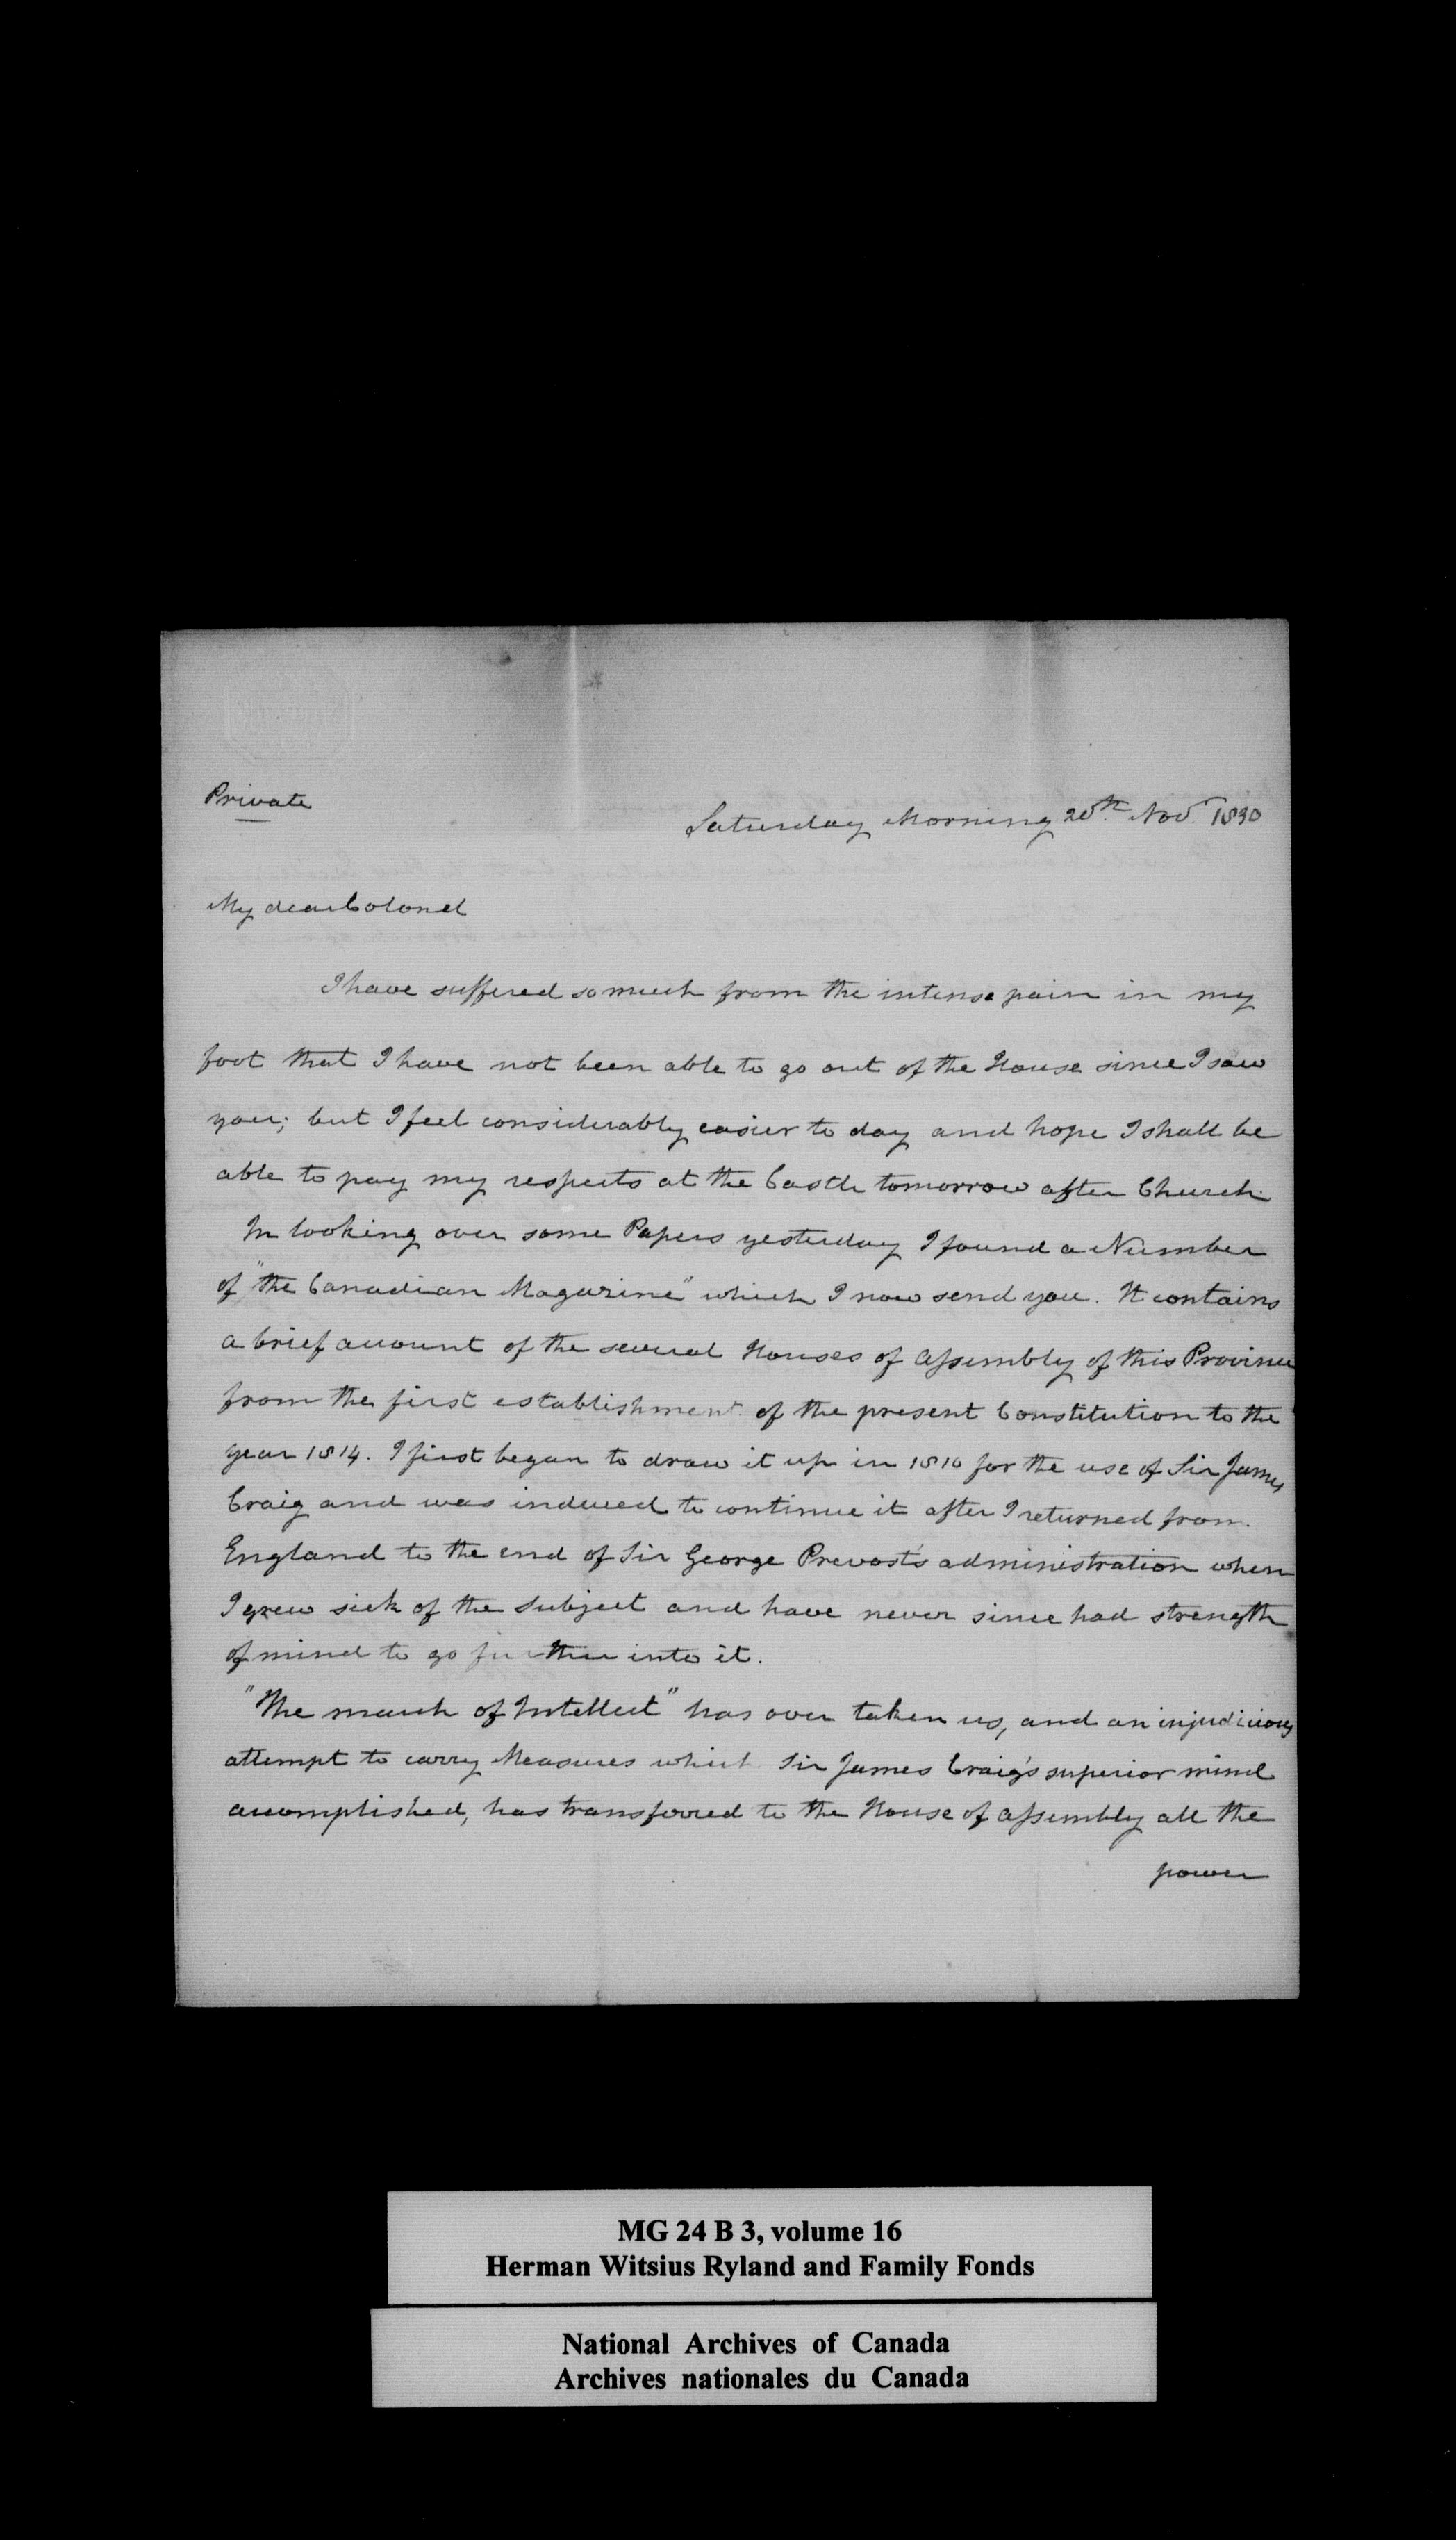 Private
Saturday Morning 20th. Novr 1830
My dear Colonel
I have suffered so much from the intense pain in my
foot that I have not been able to go out of the House since I saw
you; but I feel considerably easier to day and hope I shall be
able to pay my respects at the Castle tomorrow after Church.
In looking over some Papers yesterday I found a Number
of "the Canadian Magazine" which I now send you. It contains
a brief account of the several Houses of Assembly of this Province
from the first establishment of the present Constitution to the
year 1814. I first began to draw it up in 1810 for the use of Sir James
Craig and was induced to continue it after I returned from
England to the end of Sir George Prevost's administration when
I grew sick of the subject and have never since had strength
of mind to go further into it.
"The march of Intellect" has over taken us, and an injudicious
attempt to carry Measures which Sir James Craig's superior mind
accomplished, has transferred to the House of Assembly all the
power
MG 24 B 3, volume 16
Herman Witsius Ryland and Family Fonds
National Archives of Canada
Archives nationales du Canada